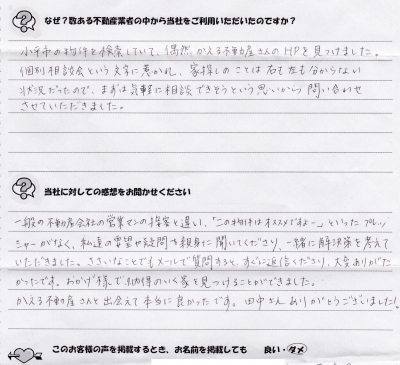 なぜ？数ある不動産業者の中から当社をご利用いただいたのですか？
小平市の物件を検索していて、偶然かえる不動産さんのHPを見つけました。
個別相談会という文字に惹かれ、家探しのことは右も左も分からない
状況だったので、まずは気軽に相談できそうという思いから問い合わせ
させていただきました。
当社に対しての感想をお聞かせください
一般の不動産会社の営業マンの接客と違い、「この物件はオススメですよー」といったプレッ
シャーがなく、私達の要望や疑問を親身に聞いてくださり、一緒に解決策を考えて
いただきました。ささいなことでもメールで質問すると、すぐに返信くださり、大変ありがた
かったです。おかげ様で納得のいく家を見つけることができました。
かえる不動産さんと出会えて本当に良かったです。田中さんありがとうございました!
このお客様の声を掲載するとき、お名前を掲載しても 良い・ダメ